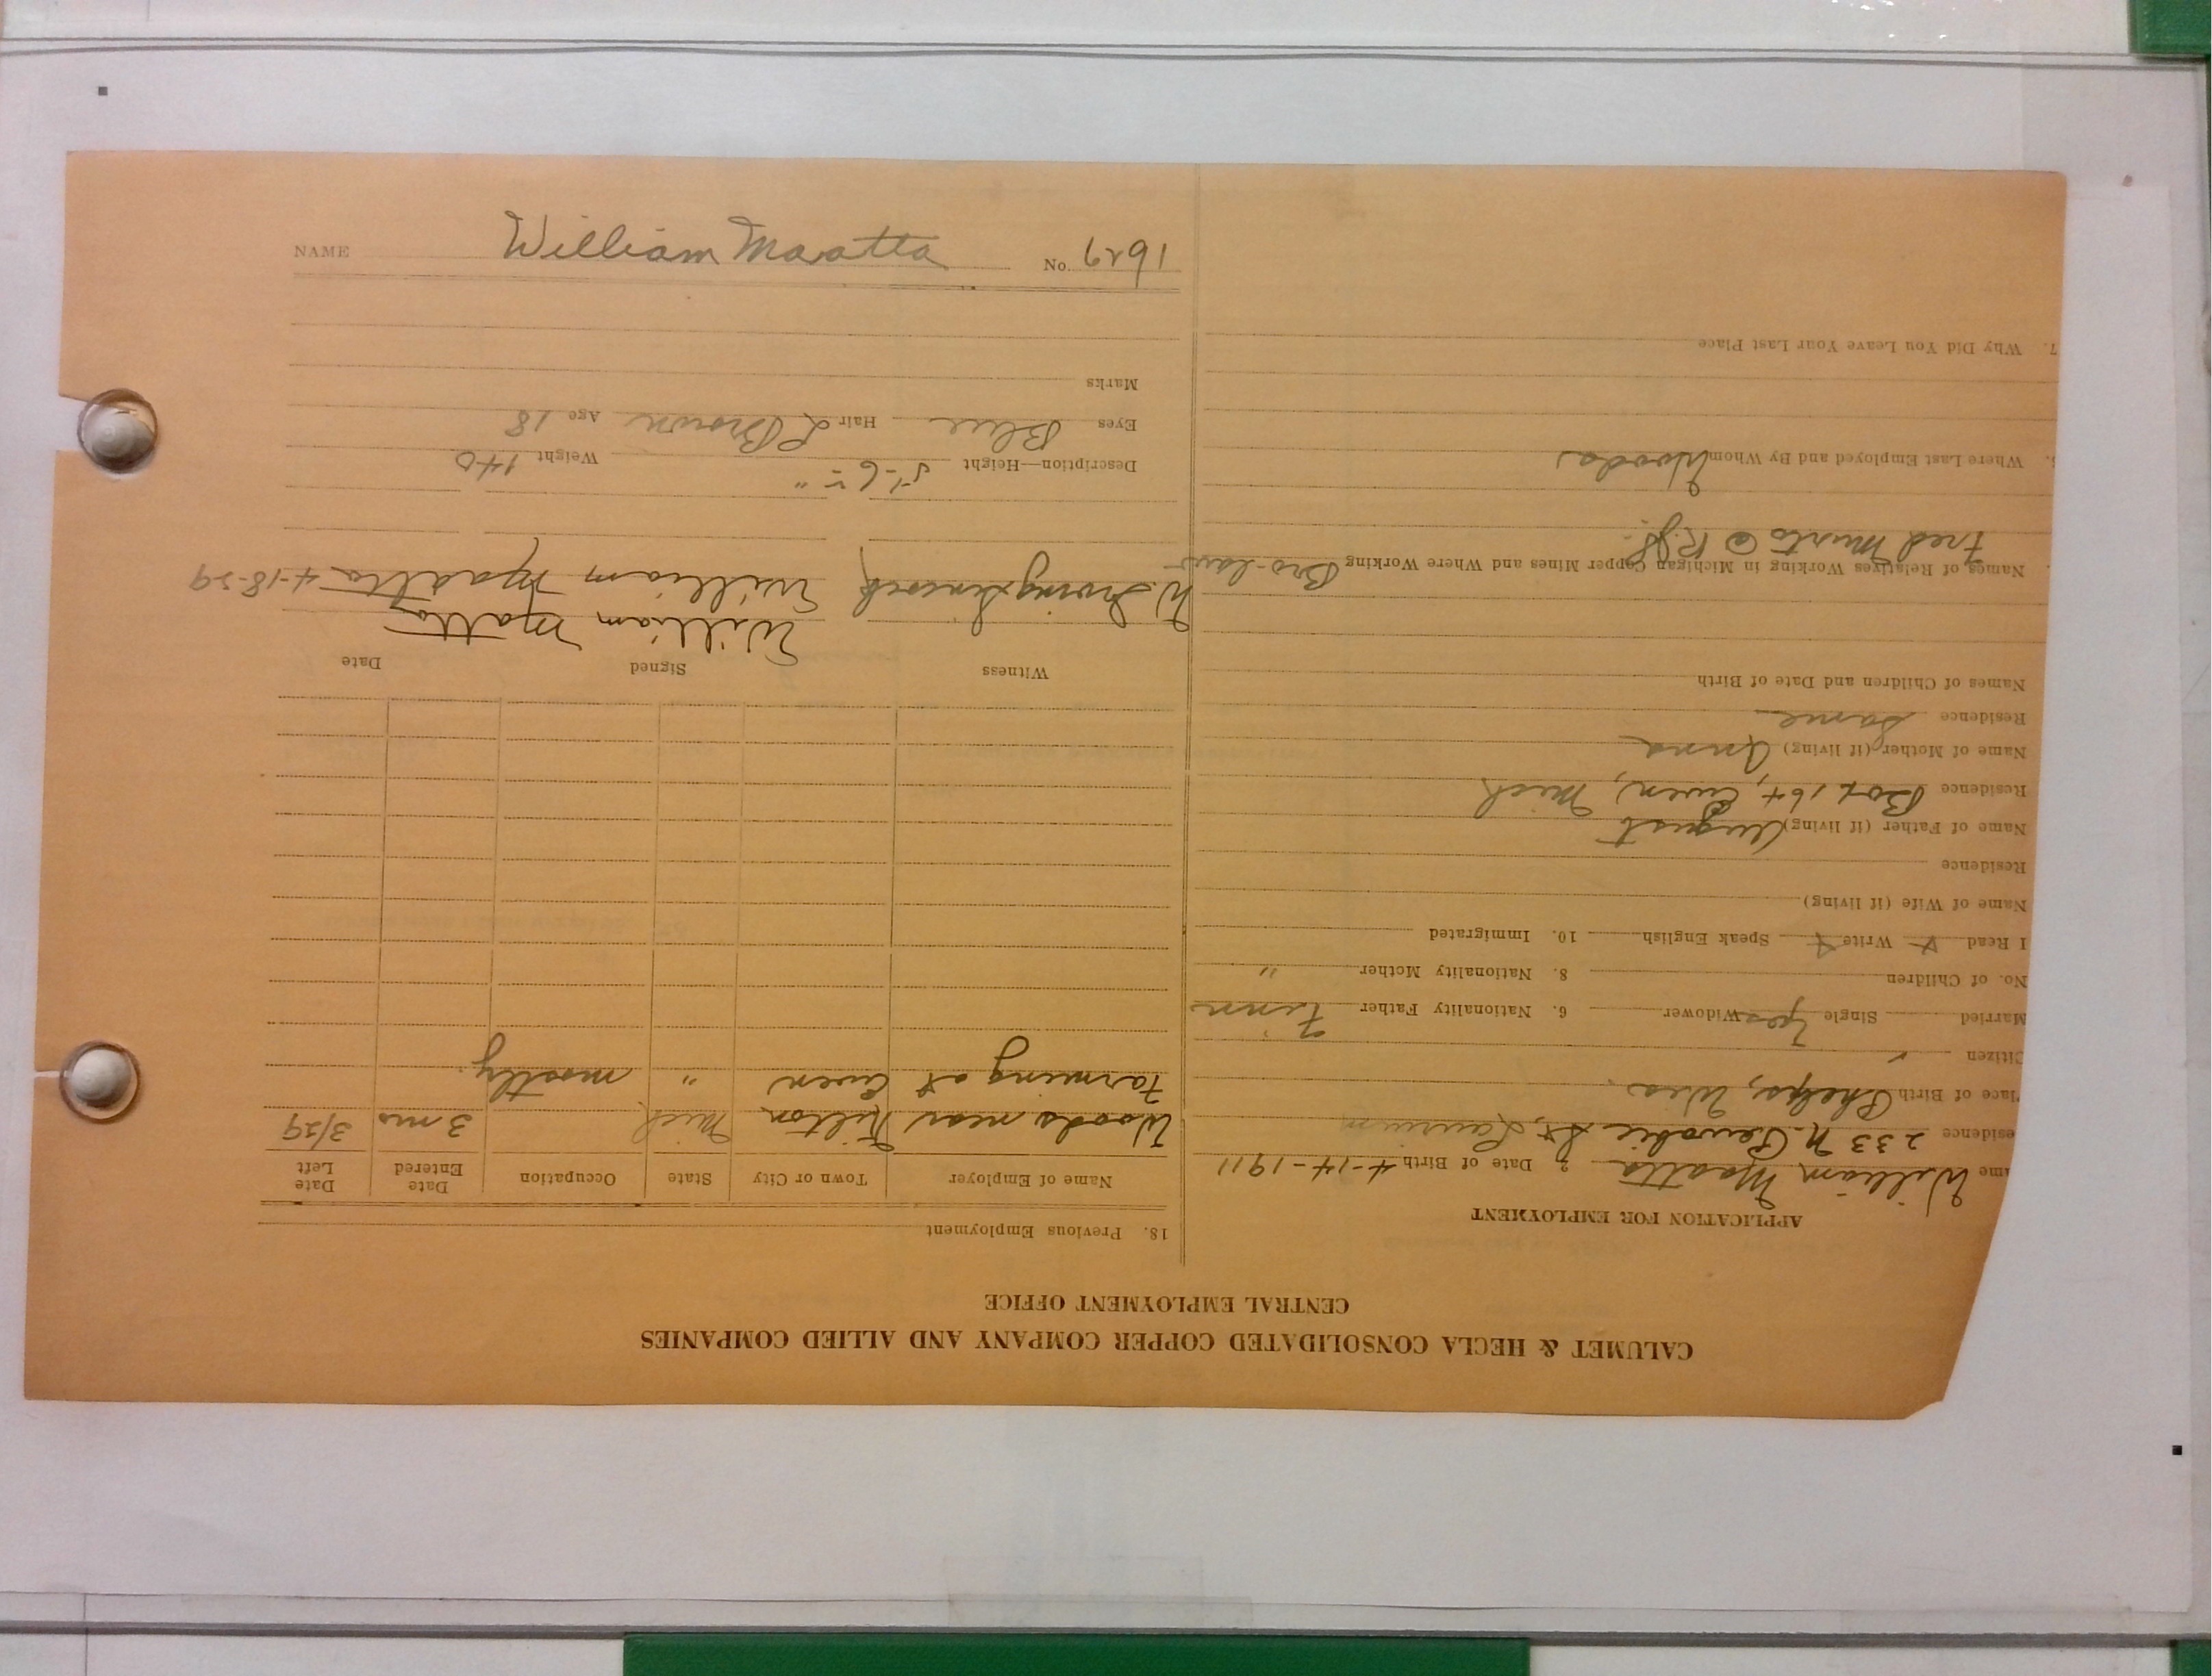 NAME William Maatta No. 6291
CALUMET & HECLA CONSOLIDATED COPPER COMPANY AND ALLIED COMPANIES
CENTRAL EMPLOYMENT OFFICE
APPLICATION FOR EMPLOYMENT
ame William Maatta 2. Date of Birth 4-14-1911
esidence 233 N. Pewabic St, Laurium
lace of Birth Phelps, Wis.
Citizen
Married Single Yes Widower 6. Nationality Father Finn
No. of Children 8. Nationality Mother "
I Read Write Speak English 10. Immigrated
Name of Wife (if living)
Residence
Name of Father (if living) August
Residence Box 164, Ewen, Mich
Name of Mother (if living) Anna
Residence Same
Names of Children and Date of Birth
Names of Relatives Working in Michigan Copper Mines and Where Working Bro-law
Fred Murto @
Where Last Employed and By Whom Woods
7. Why Did You Leave Your Last Place
18. Previous Employment
Name of Employer Town or City State Occupation Date Entered Date Left
Woods near Kilton Mich. 3 ms 3/29
Farming at Ewen " mostly.
Witness Signed Date
William Matta
W. Irving William Maatta 4-18-29
Description—Height 5'-6 " Weight 140
Eyes Blue Hair L Brown Age 18
Marks